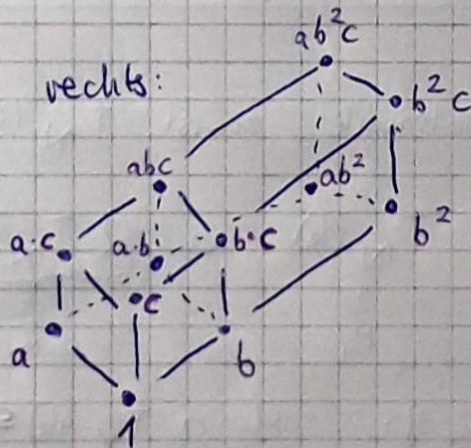 rechts:
ab²c
b²c
abc
ab²
a·c
a·b
b·c
b²
c
a
b
1